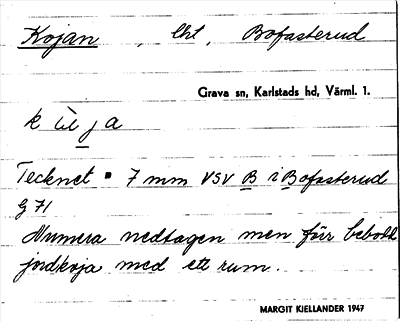 Kojan, lht, Bofasterud
Grava sn, Karlstads hd, Värml. 1.
k ja
Tecknet ▪ 7 mm VSV B i Bofasterud
g 71
Numera nedtagen men förr bebodd
jordkoja med ett rum.
MARGIT KJELLANDER 1947